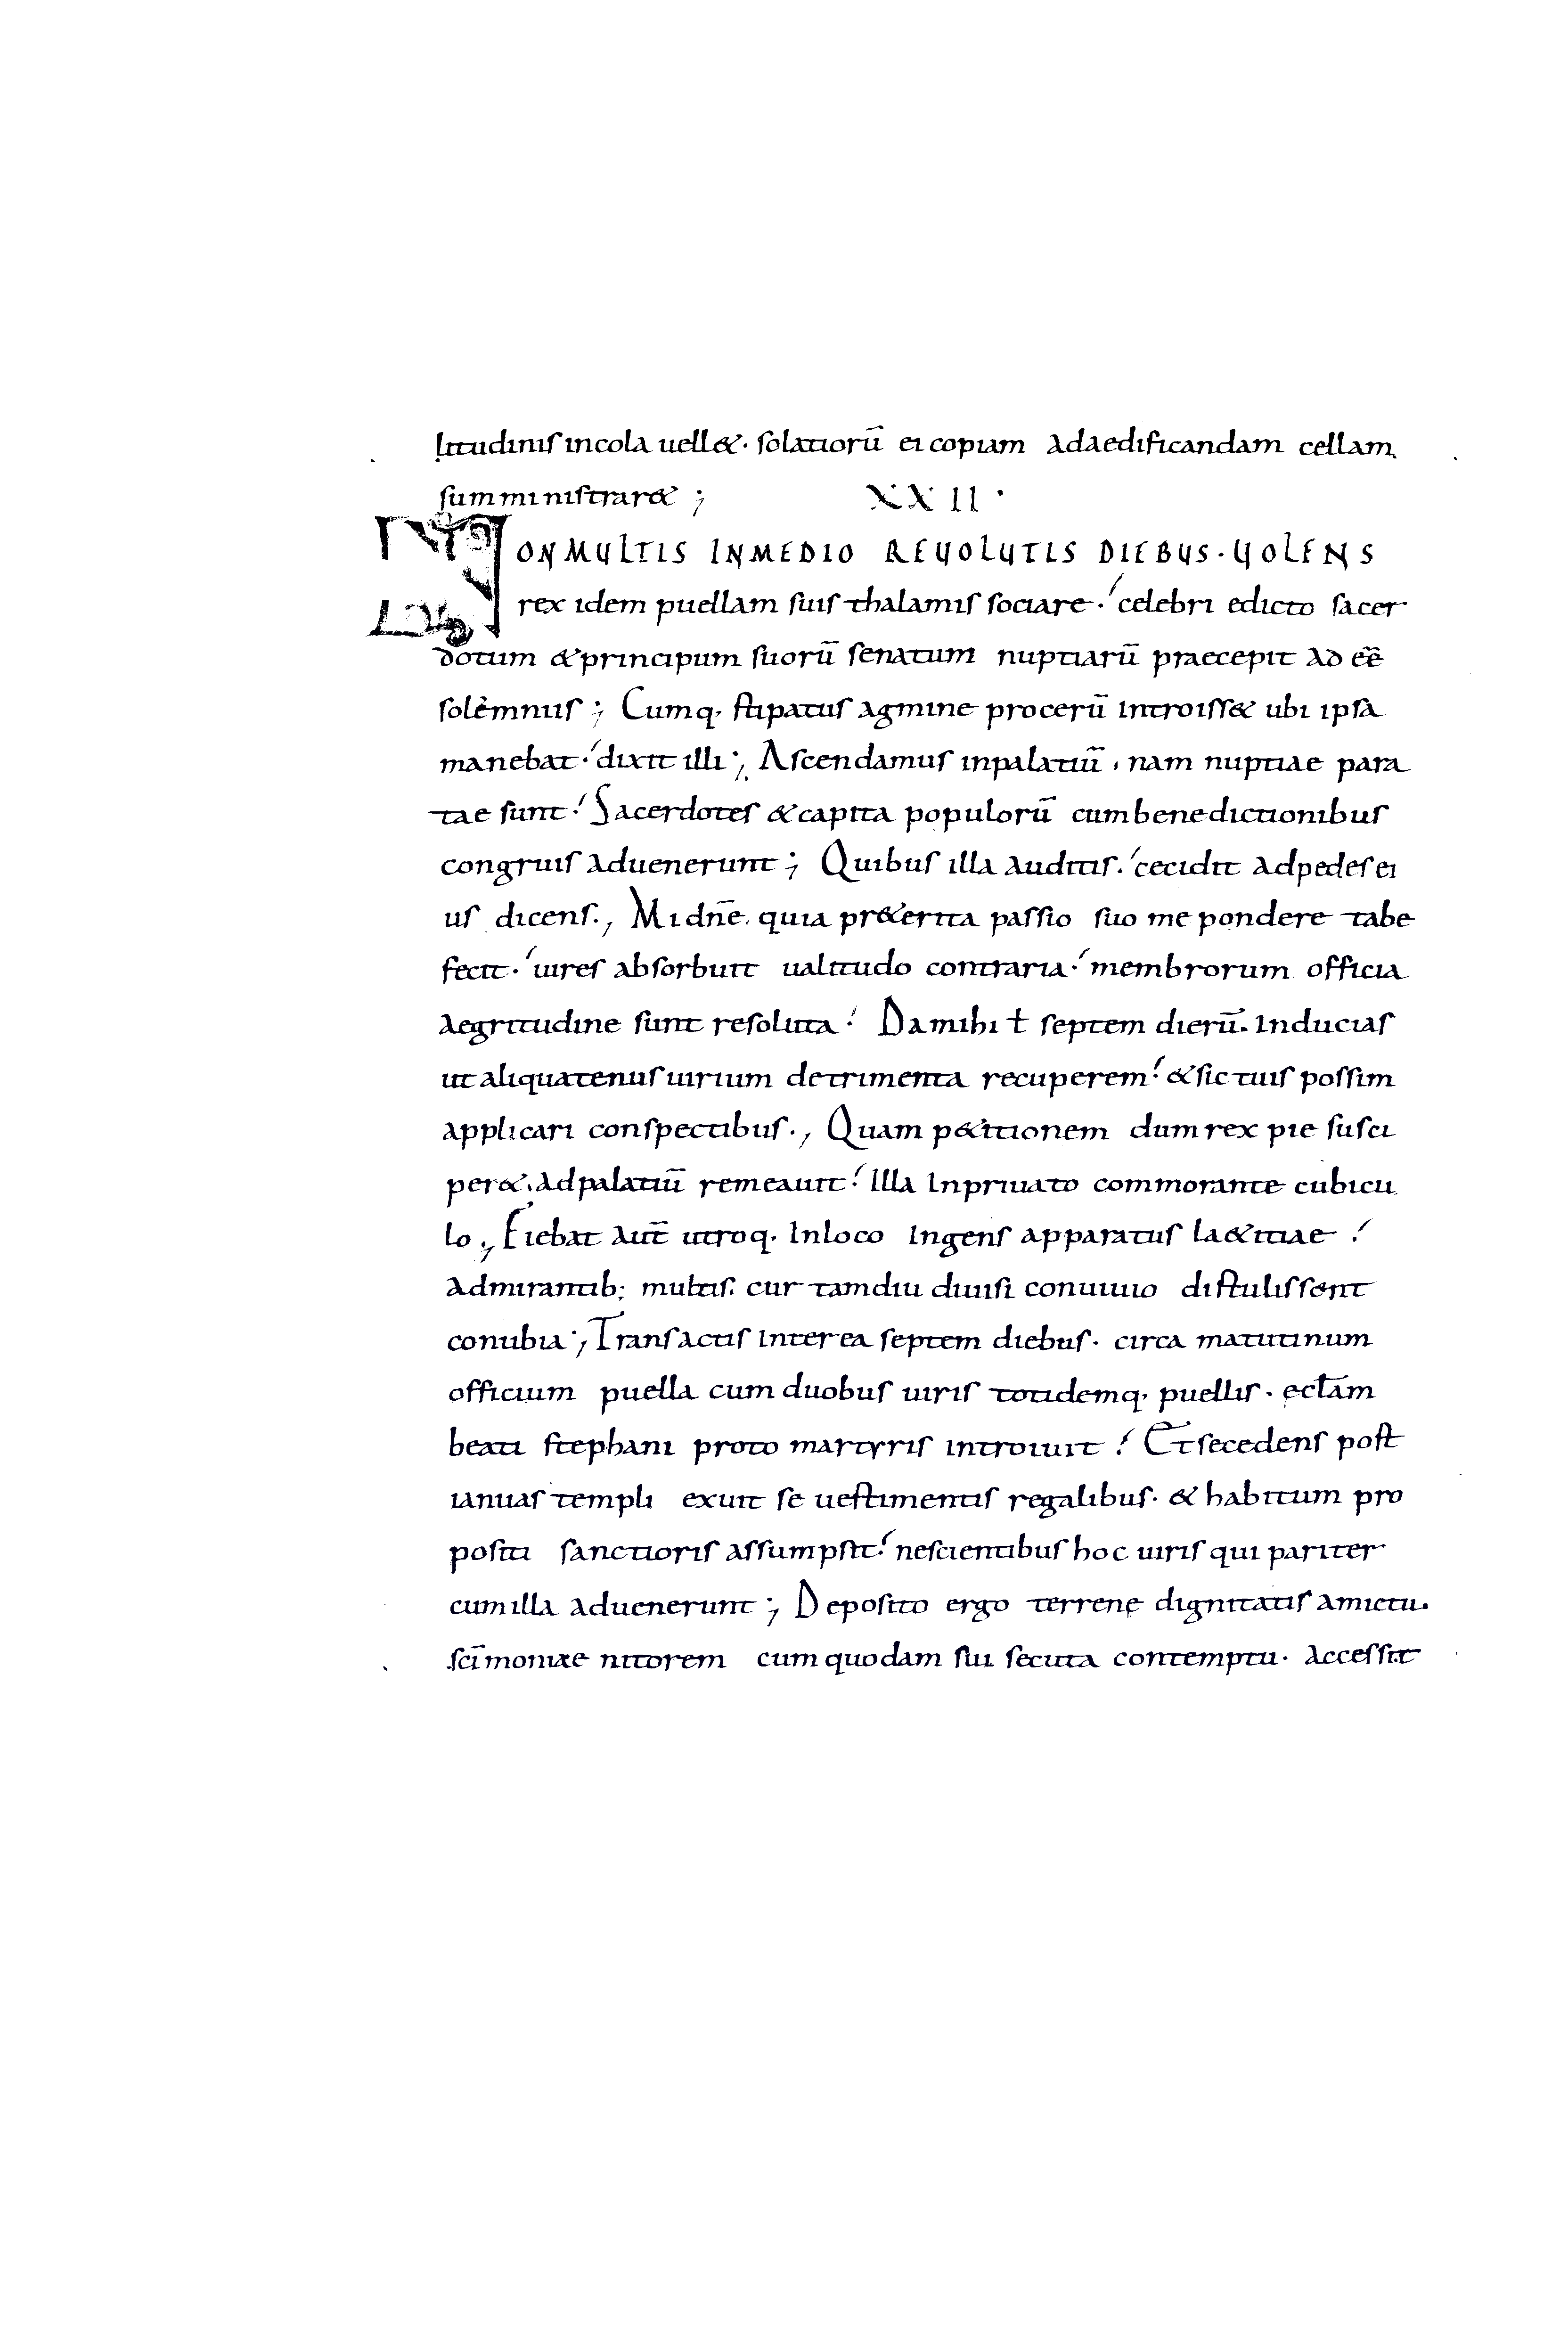 litudinis incola uell&. solatiorū ei copiam adaedificandam cellam
sumministrar& ; XXII ·
NONMULTIS INMEDIO REUOLUTIS DIEBUS · UOLENS
rex idem puellam suis thalamis sociare · celebri edicto sacer
dotum &principum suorū senatum nuptiarū praecepit ad eē
solemniis ; Cumq. stipatus agmine procerū introiss& ubi ipsa
manebat · dixit illi ; Ascendamus inpalatiū , nam nuptiae para
tae sunt · Sacerdotes &capita populorū cumbenedictionibus
congruis aduenerunt ; Quibus illa auditis. cecidit adpedes ei
us dicens., Mi dn̄e. quia pr&erita passio suo me pondere tabe
fecit · uires absorbuit ualitudo contraria · membrorum officia
aegritudine sunt resoluta · Damihi ƚ septem dierū. inducias
ut aliquatenus uirium detrimenta recuperem · &sic tuis possim
applicari conspectibus., Quam p&itionem dum rex pie susci
per&. adpalatiū remeauit · Illa inpriuato commorante cubicu
lo ., Fiebat aut̄ utroq. inloco ingens apparatus la&itiae ·
admirantib; multis. cur tamdiu diuisi conuiuio distulissent
conubia ·, Transactis interea septem diebus · circa matutinum
officium puella cum duobus uiris totidemq. puellis · ecƚam
beati stephani proto martyris introiuit · Et secedens post
ianuas templi exuit se uestimentis regalibus · & habitum pro
positi sanctioris assumpsit · nescientibus hoc uiris qui pariter
cum illa aduenerunt ; Deposito ergo terrenę dignitatis amictu.
sci̅moniae nitorem cum quodam sui secuta contemptu · accessit